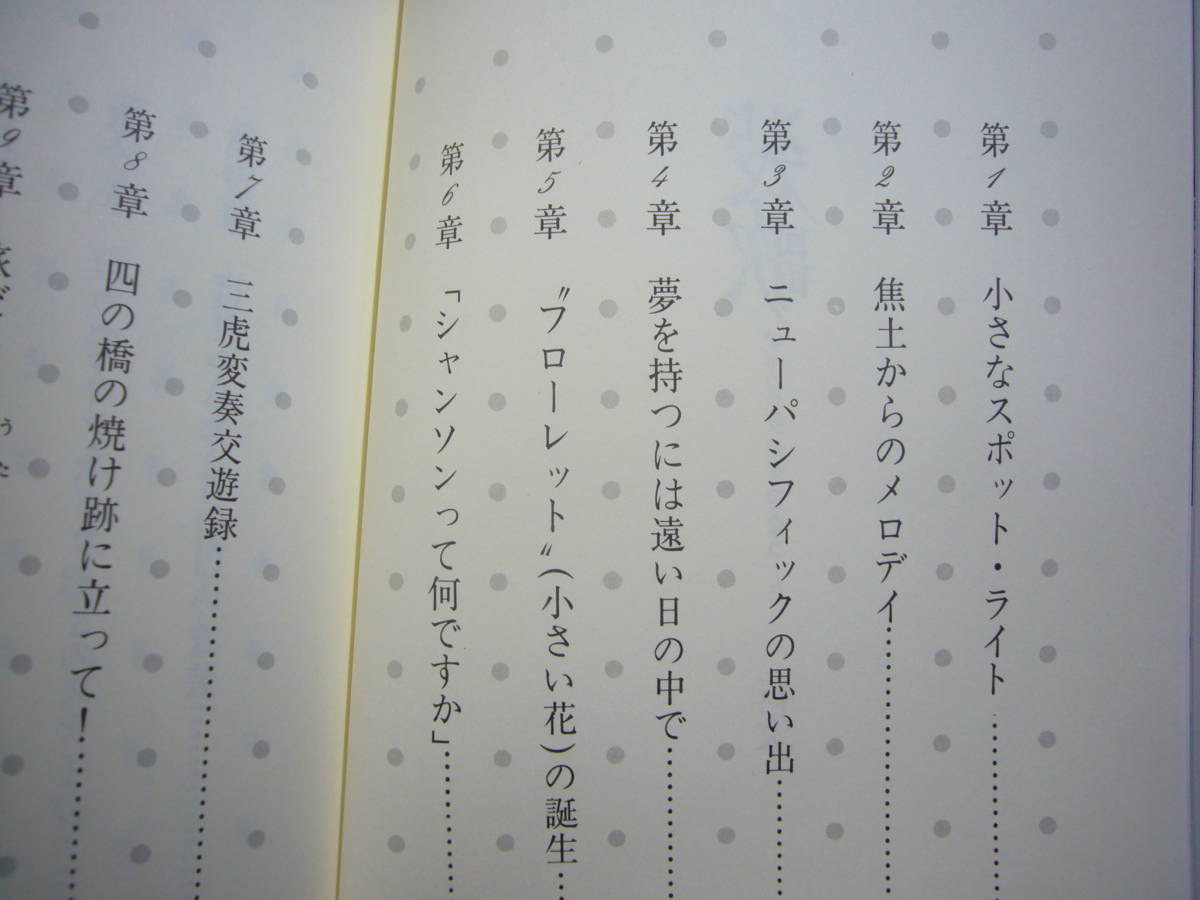 第1章 小さなスポット・ライト…………
第2章 焦土からのメロデイ…………
第3章 ニューパシフィックの思い出…………
第4章 夢を持つには遠い日の中で…………
第5章 〝フローレット〟(小さい花)の誕生…
第6章 「シャンソンって何ですか」…………
第7章 三虎変奏交遊録…………
第8章 四の橋の焼け跡に立って!…………
第9章
うた